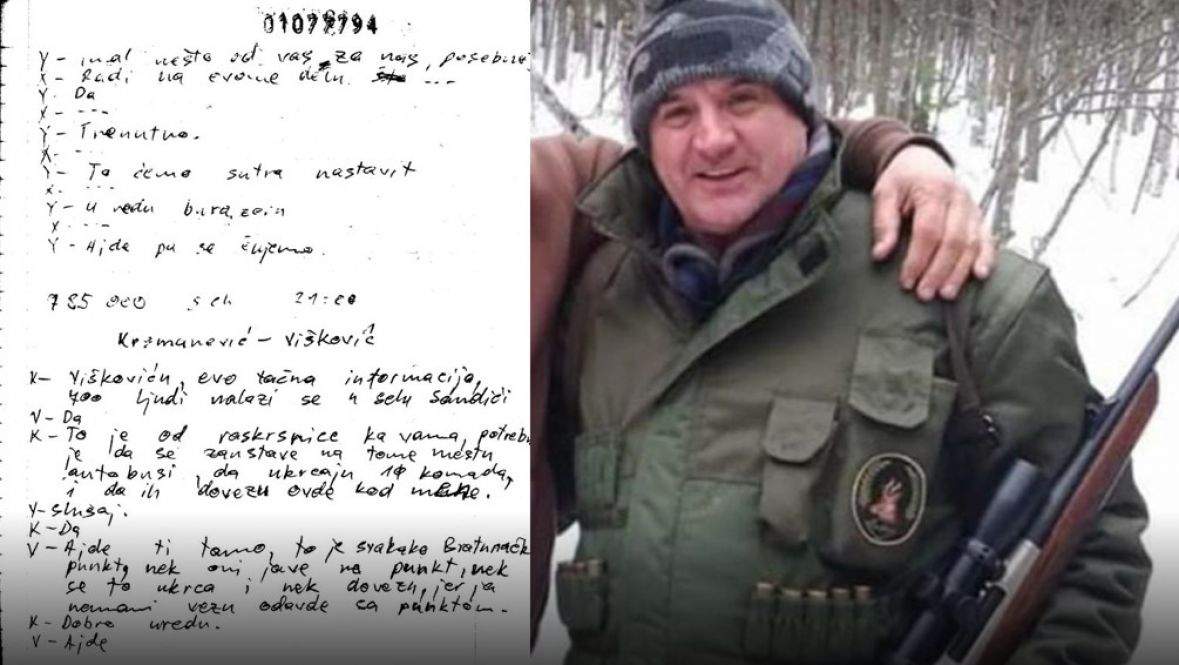 01077794
Y - imal nešto od vas za nas, posebno
X - Radi na evome delu. ---
Y - Da
X - ---
Y - Trenutno.
X - ---
Y - To ćemo sutra nastavit
X - ---
Y - U redu burazeru
X - ---
Y - Ajde pa se čujemo.
785 000 s ch 21:00
Krsmanović - Višković
K - Viškoviću, evo tačna informacija,
700 ljudi nalazi se u selu Sandići
V - Da
K - To je od raskrsnice ka vama, potrebno
je da se zaustave na tome mestu
autobusi, da ukrcaju 10 komada,
i da ih dovezu ovde kod mene.
V - Slušaj.
K - Da
V - Ajde ti tamo, to je svakako Bratunačk
punkt, nek oni jave na punkt, nek
se to ukrca i nek dovezu, jer ja
nemam vezu odavde sa punktom.
K - Dobro uredu.
V - Ajde